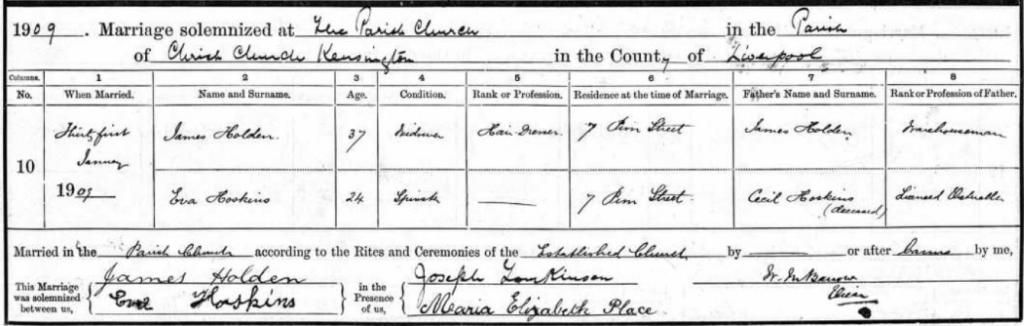 1909. Marriage solemnized at The Parish Church in the Parish
of Christ Church Kensington in the County of Liverpool
Columns. 1 2 3 4 5 6 7 8
No. When Married. Name and Surname. Age. Condition. Rank or Profession. Residence at the time of Marriage. Father's Name and Surname. Rank or Profession of Father.
Thirty first James Holden 37 Widower Hair-Dresser 7 Pim Street James Holden Warehouseman
January
10
1909 Eva Hoskins 24 Spinster 7 Pim Street Cecil Hoskins Licensed
(deceased)
Married in the Parish Church according to the Rites and Ceremonies of the Established Church by or after banns by me,
This Marriage was solemnized between us, James Holden in the Presence of us, Joseph Tonkinson
Eva Hoskins Maria Elizabeth Place
Vicar